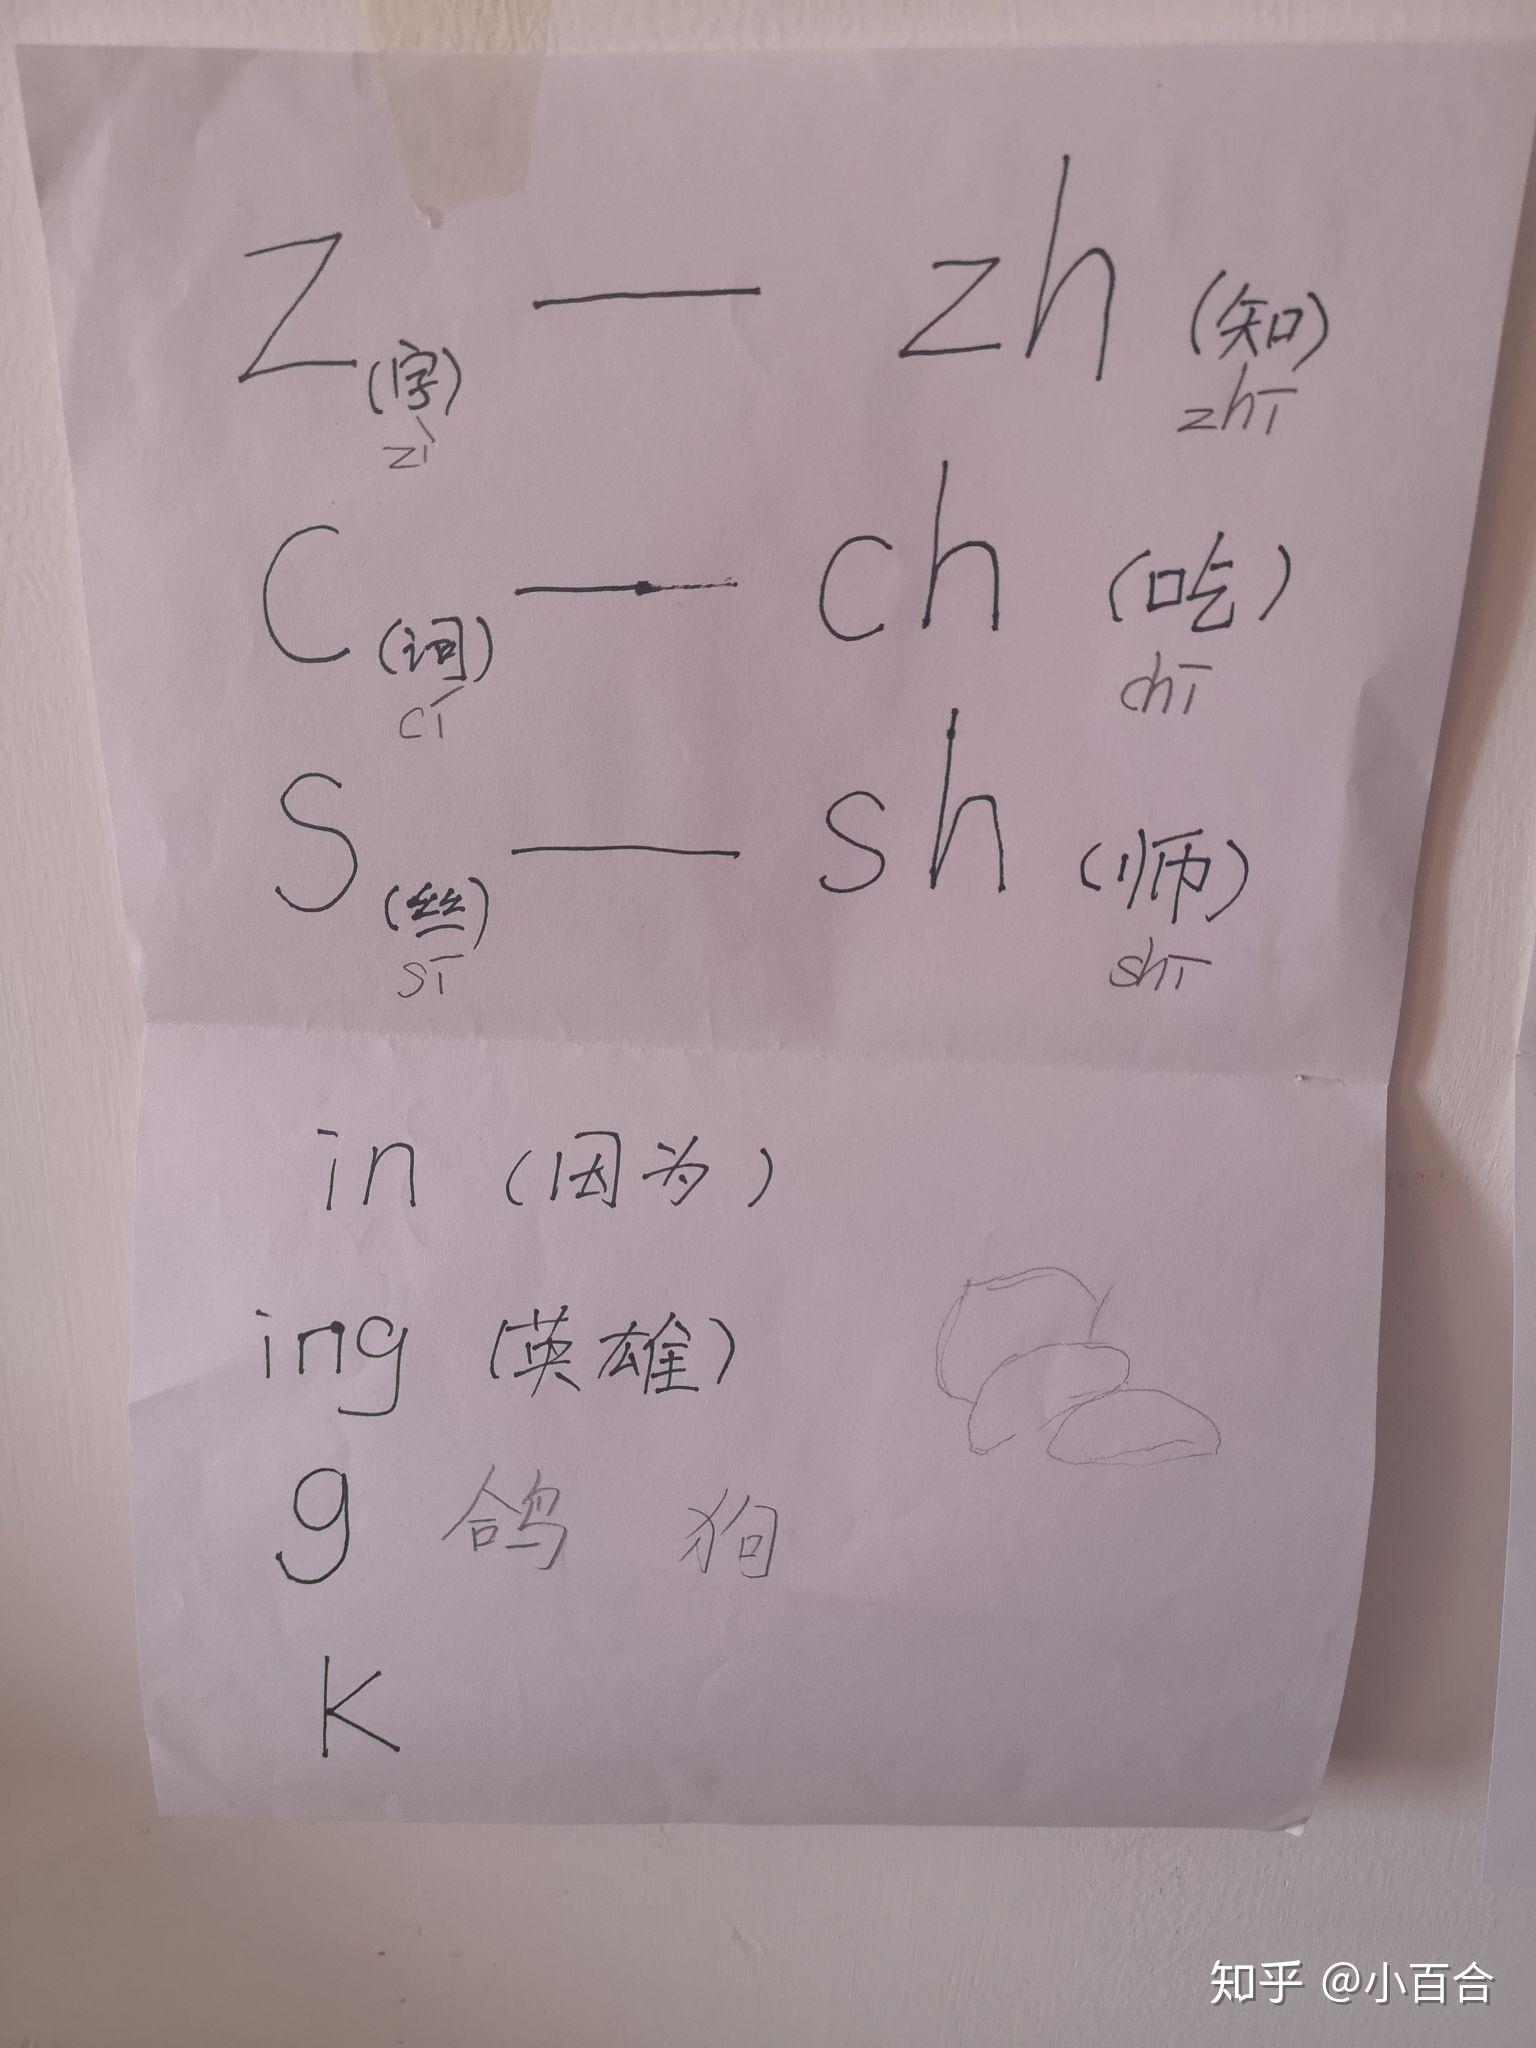 z(字) — zh (知)
zì zhī
c(词) — ch (吃)
cí chī
s(丝) — sh (师)
sī shī
in (因为)
ing (英雄)
g 鸽 狗
k
知乎 @小百合